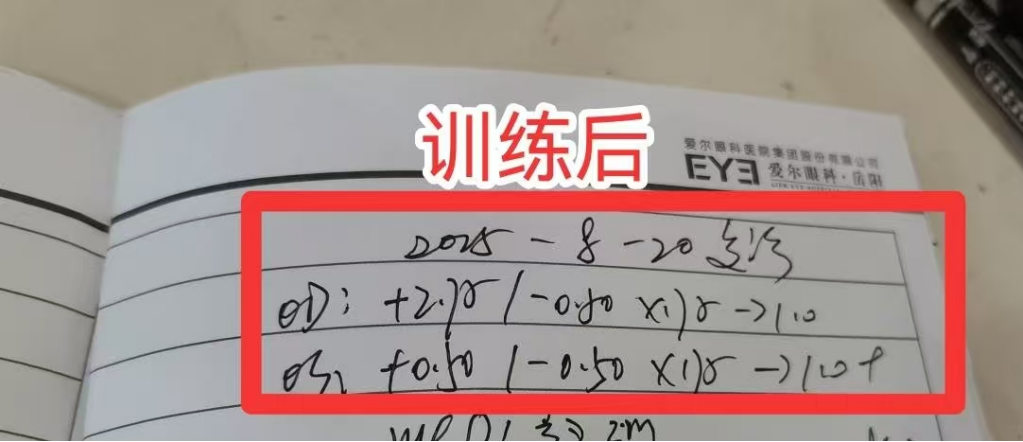 训练后
爱尔眼科医院集团股份有限公司
EYE 爱尔眼科·岳阳
2025-8-20复诊
OD: +2.75/-0.50×175→1.0
OS: +0.50/-0.50×175→1.0+